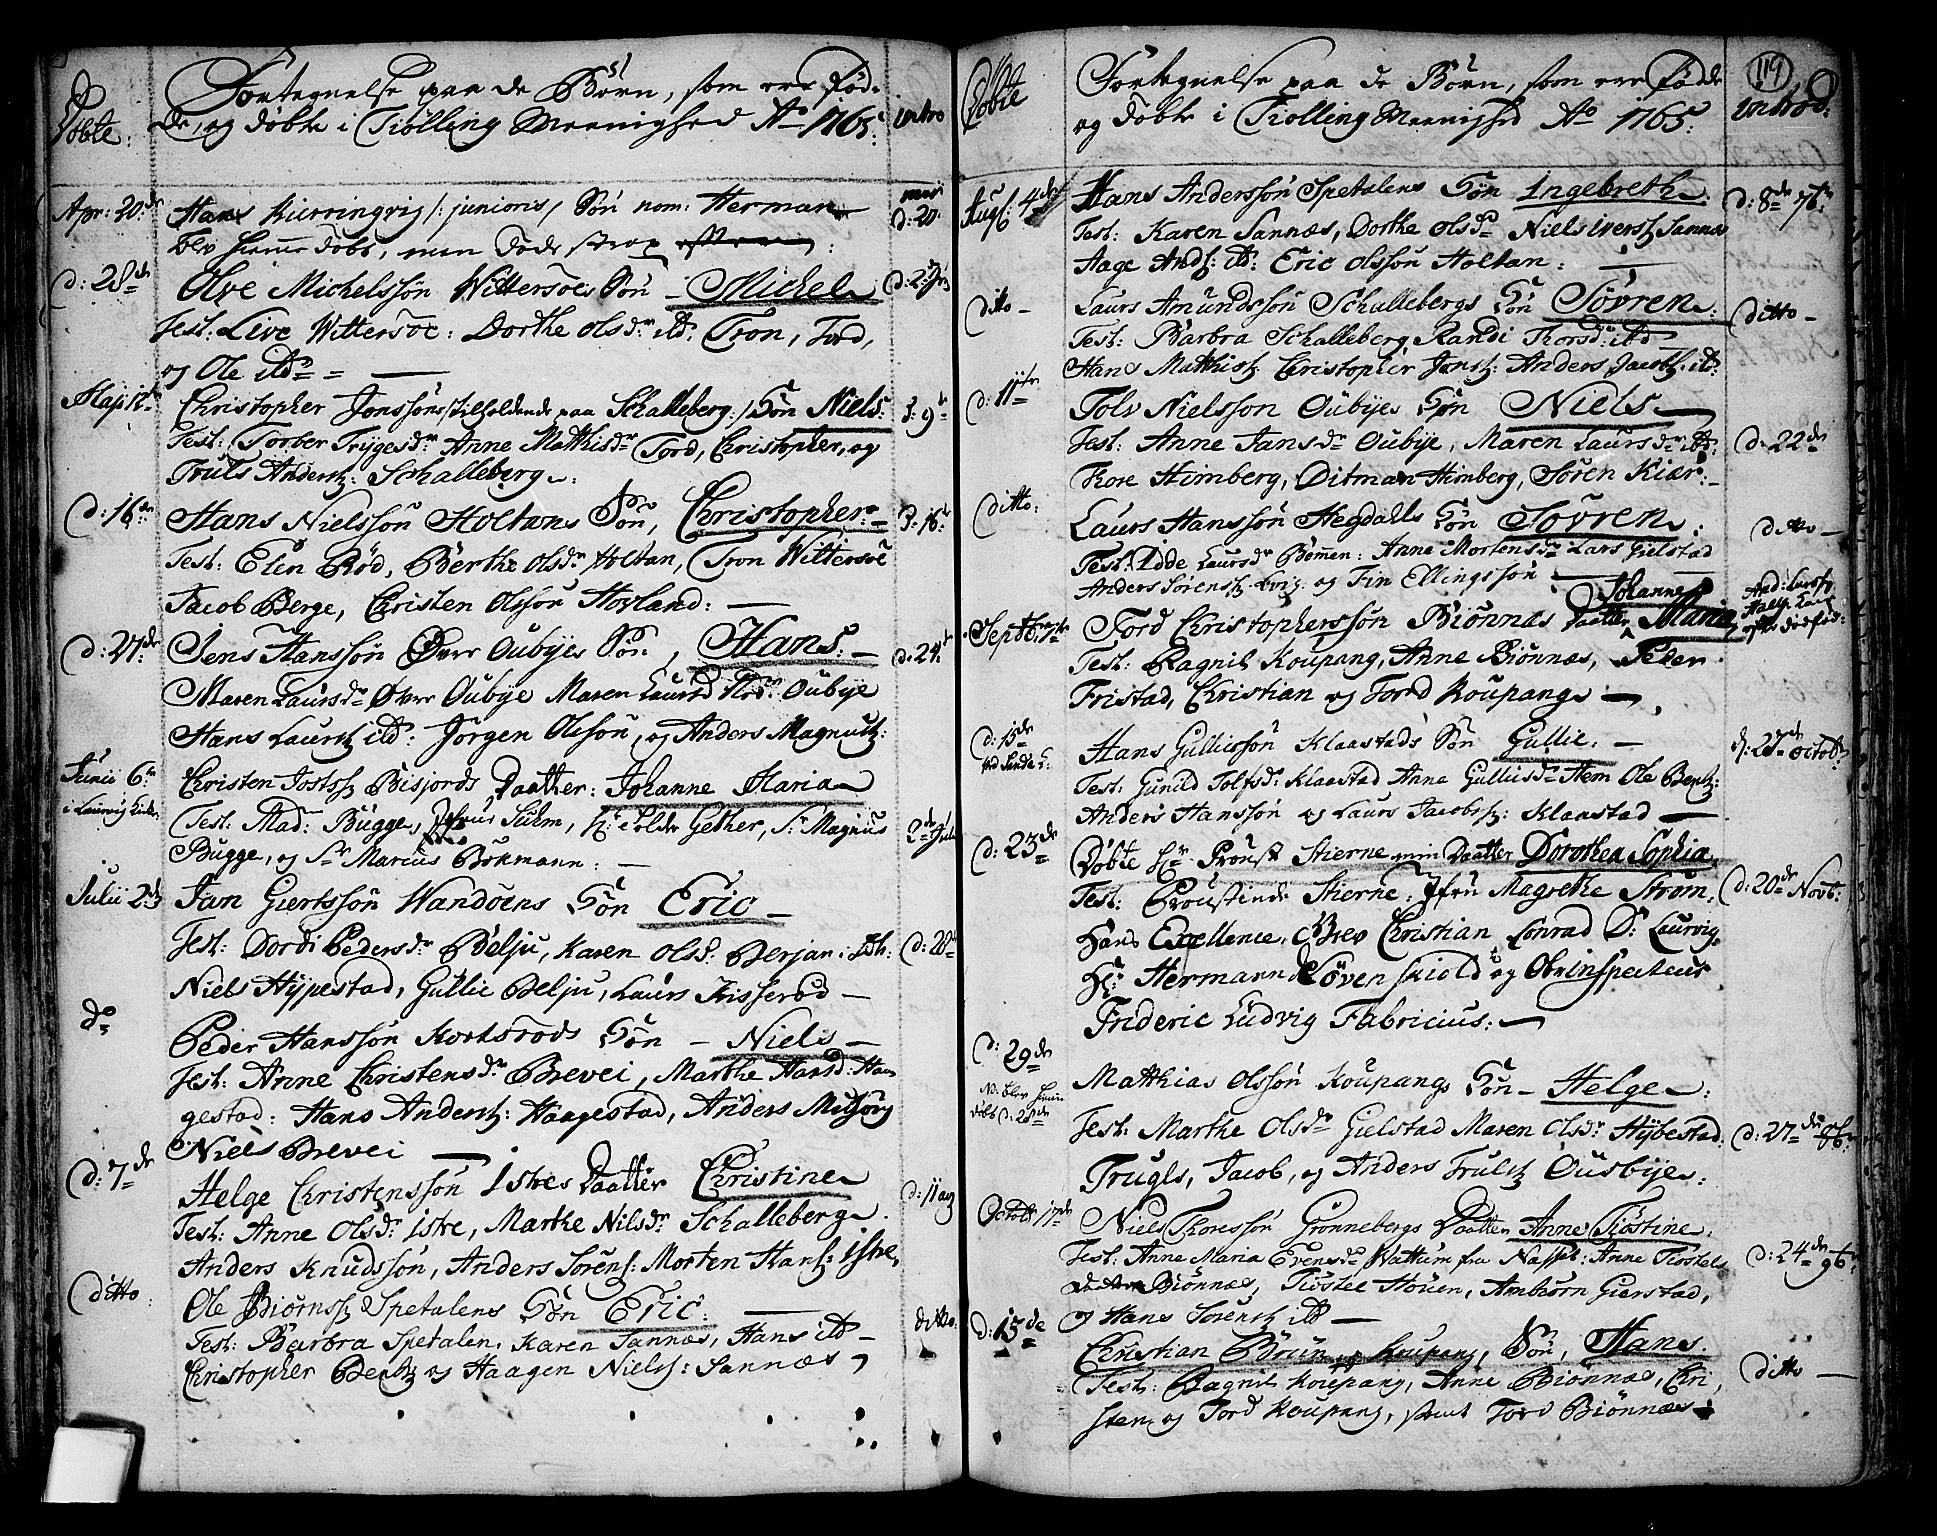 Döbte:
Fortegnelse paa de Börn, som ere Föd-
de, og döbte i Tiölling Meenighed Ao 1765:
intro
Apr: 20de
Hans Kierringvig /: junioris / Sön nom: Herman
d: 20
blev hiemme döbt, men döde strax
d: 28de
Olve Michelssön Wittersöes Sön - Michel
Test: Live Wittersöe: Dorthe Olsdr ibd: Tron, Tord,
og Ole ibd = -
Maji 12te
Christopher Jonssöns tilholdende paa Schalleberg :/ Sön Niels:
d: 9de
Test: Torber Trygesdr Anne Mathisdr Tord, Christopher, og
Truls Anderss: Schalleberg:
d: 16de
Hans Nielssön Holtans Sön, Christopher -
d: 16de
Test: Elen Röd, Berthe Olsdr Holtan, Tron Wittersöe
Jacob Berge, Christen Olssön Hovland: -
d: 27de
Jens Hanssön Övre Oubyes Sön, Hans: -
d: 24de
Maren Laursdr Övre Oubye Maren Laursd Oubye
Hans Laurss ibd: Jörgen Olssön, og Anders Magnuss:
Junii 6te
i Laurvig Kirke
Christen Jostss Bisjords Daatter: Johanne Maria
Test: Mad: Bugge, Jfru Suhm, Hr Peder Gether, Sr Magnus
2de Julii
Bugge, og Sr Marcus Bökmann: -
Julii 2de
Jan Giertssön Wandöens Sön Eric -
Test: Dordi Pedersdr Belju, Karen Olsdr Berjan: ibd:
d: 28de
Niels Hyppestad, Gullic Belju, Laurs Tisseröd -
do
Peder Hanssön Kortsröds Sön - Niels -
Test: Anne Christensdr Brevei, Marthe Hansd: Haa
gestad: Hans Anderss: Haagestad, Anders
Niels Brevei -
d: 7de
Helge Christenssön Istres Daatter Christine
d: 11 aug
Test: Anne Olsdr Istre, Marthe Nilsdr Schalleberg.
Anders Knudssön, Anders Sörens: Morten Hans: Istre,
ditto
Ole Biörnss Spetalens Sön Eric: -
ditto.
Test: Barbra Spetalen, Karen Sannæs, Hans ibd -
Christopher Bentss og Haagen Nielss: Sannæs
Döbte
Fortegnelse paa de Börn, som ere Födde
og döbte i Tiölling Meenighed Ao 1765:
119
introd:
Aug: 4de
Hans Anderssön Spetalens Sön Ingebreth:
d: 8de
Test: Karen Sannæs, Dorthe Olsdr Niels Iverss Sannæs
Aage Ands: ibd: Eric Olssön Holtan: -
ditto -
Laurs Amundssön Schallebergs Sön Sövren:
ditto -
Test: Barbra Schalleberg Randi Thorsd: ibd
Hans Matthiss Christopher Jonss: Anders Jacobs. ibd:
d: 11te
Tolv Nielssön Oubyes Sön Niels -
Test: Anne Jansdr Oubye, Maren Laursdr ibd:
d: 22de
Tore Himberg, Ditman Himberg, Sören Kiær: -
ditto:
Laurs Hanssön Hegdahls Sön Sövren:
ditto -
Test: Idde Laursdr Bömmen: Anne Mortensdr Lars Gielstad
Anders Sörenss: og Fin Ellingssön -
Septbr
Tord Christopherssön Biönnæs Daatter Johanne Maria,
Test: Ragnil Koupang, Anne Biönnæs, Peter
Fristad, Christian og Tord Koupang -
d: 15de
Hans Gullicssön Klaastads Sön Gullic. -
d: 27de octobr
Test: Gunild Tolfsdr Klaastad Anne Gullicsdr Hem Ole Bentss:
Anders Hanssön og Laurs Jacobss: Klaastad -
d: 23de
Döbte Hr Proust Stierne min Daatter Dorothea Sophia,
d: 20de Novbr:
Test: Proustinde Stierne, Jfru Magrethe Ström,
Hans Excellence, Grev Christian Conrad Dr Laurvig,
Hr Hermann Lövenskiold og Obrinspecteur
Frideric Ludvig Fabricius: -
d: 29de
NB: blev hiem
döbt d: 28de
Matthias Olssön Koupangs Sön - Helge:
Test: Marthe Olsdr Gielstad Maren Olsdr Hybestad
d: 27de
Trugls, Jacob, og Anders Trulss Ousbye:
Octobr 17de
Niels Thoressön Grönnebergs Daatter Anne Kiöstine:
Test: Anne Maria Evensdr Wattum fra Næsset: Anne Tostels
d: 24de
Biönnæs, Tiöstel Houen, Ambiörn Gierstad,
og Hans Sörenss ibd -
d: 15de
Christian Brun og Koupang, Sön, Hans.
ditto -
Test: Ragnil Koupang, Anne Biönnæs, Chri,
sten, og Tord Koupang, samt Tord Biönnæs